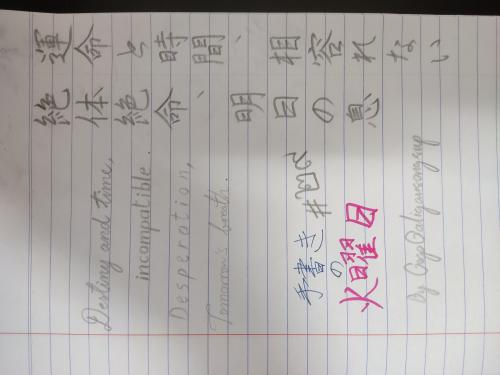 運命と時間、相容れない
絶体絶命、明日の息
Destiny and time,
incompatible.
Desperation,
Tomorrow's breath.
手書き
の
火曜日
By